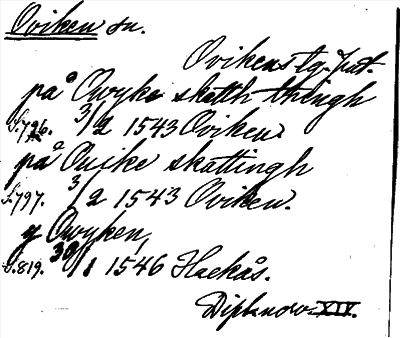 Oviken sn.
Ovikens tg. Jmt.
på Owyke skatth thingh
s.796. 3/2 1543 Oviken.
på Ouike skattingh
s.797. 3/2 1543 Oviken.
y Owyken,
s.819. 30/1 1546 Hackås.
Dipl. norv. XIV.